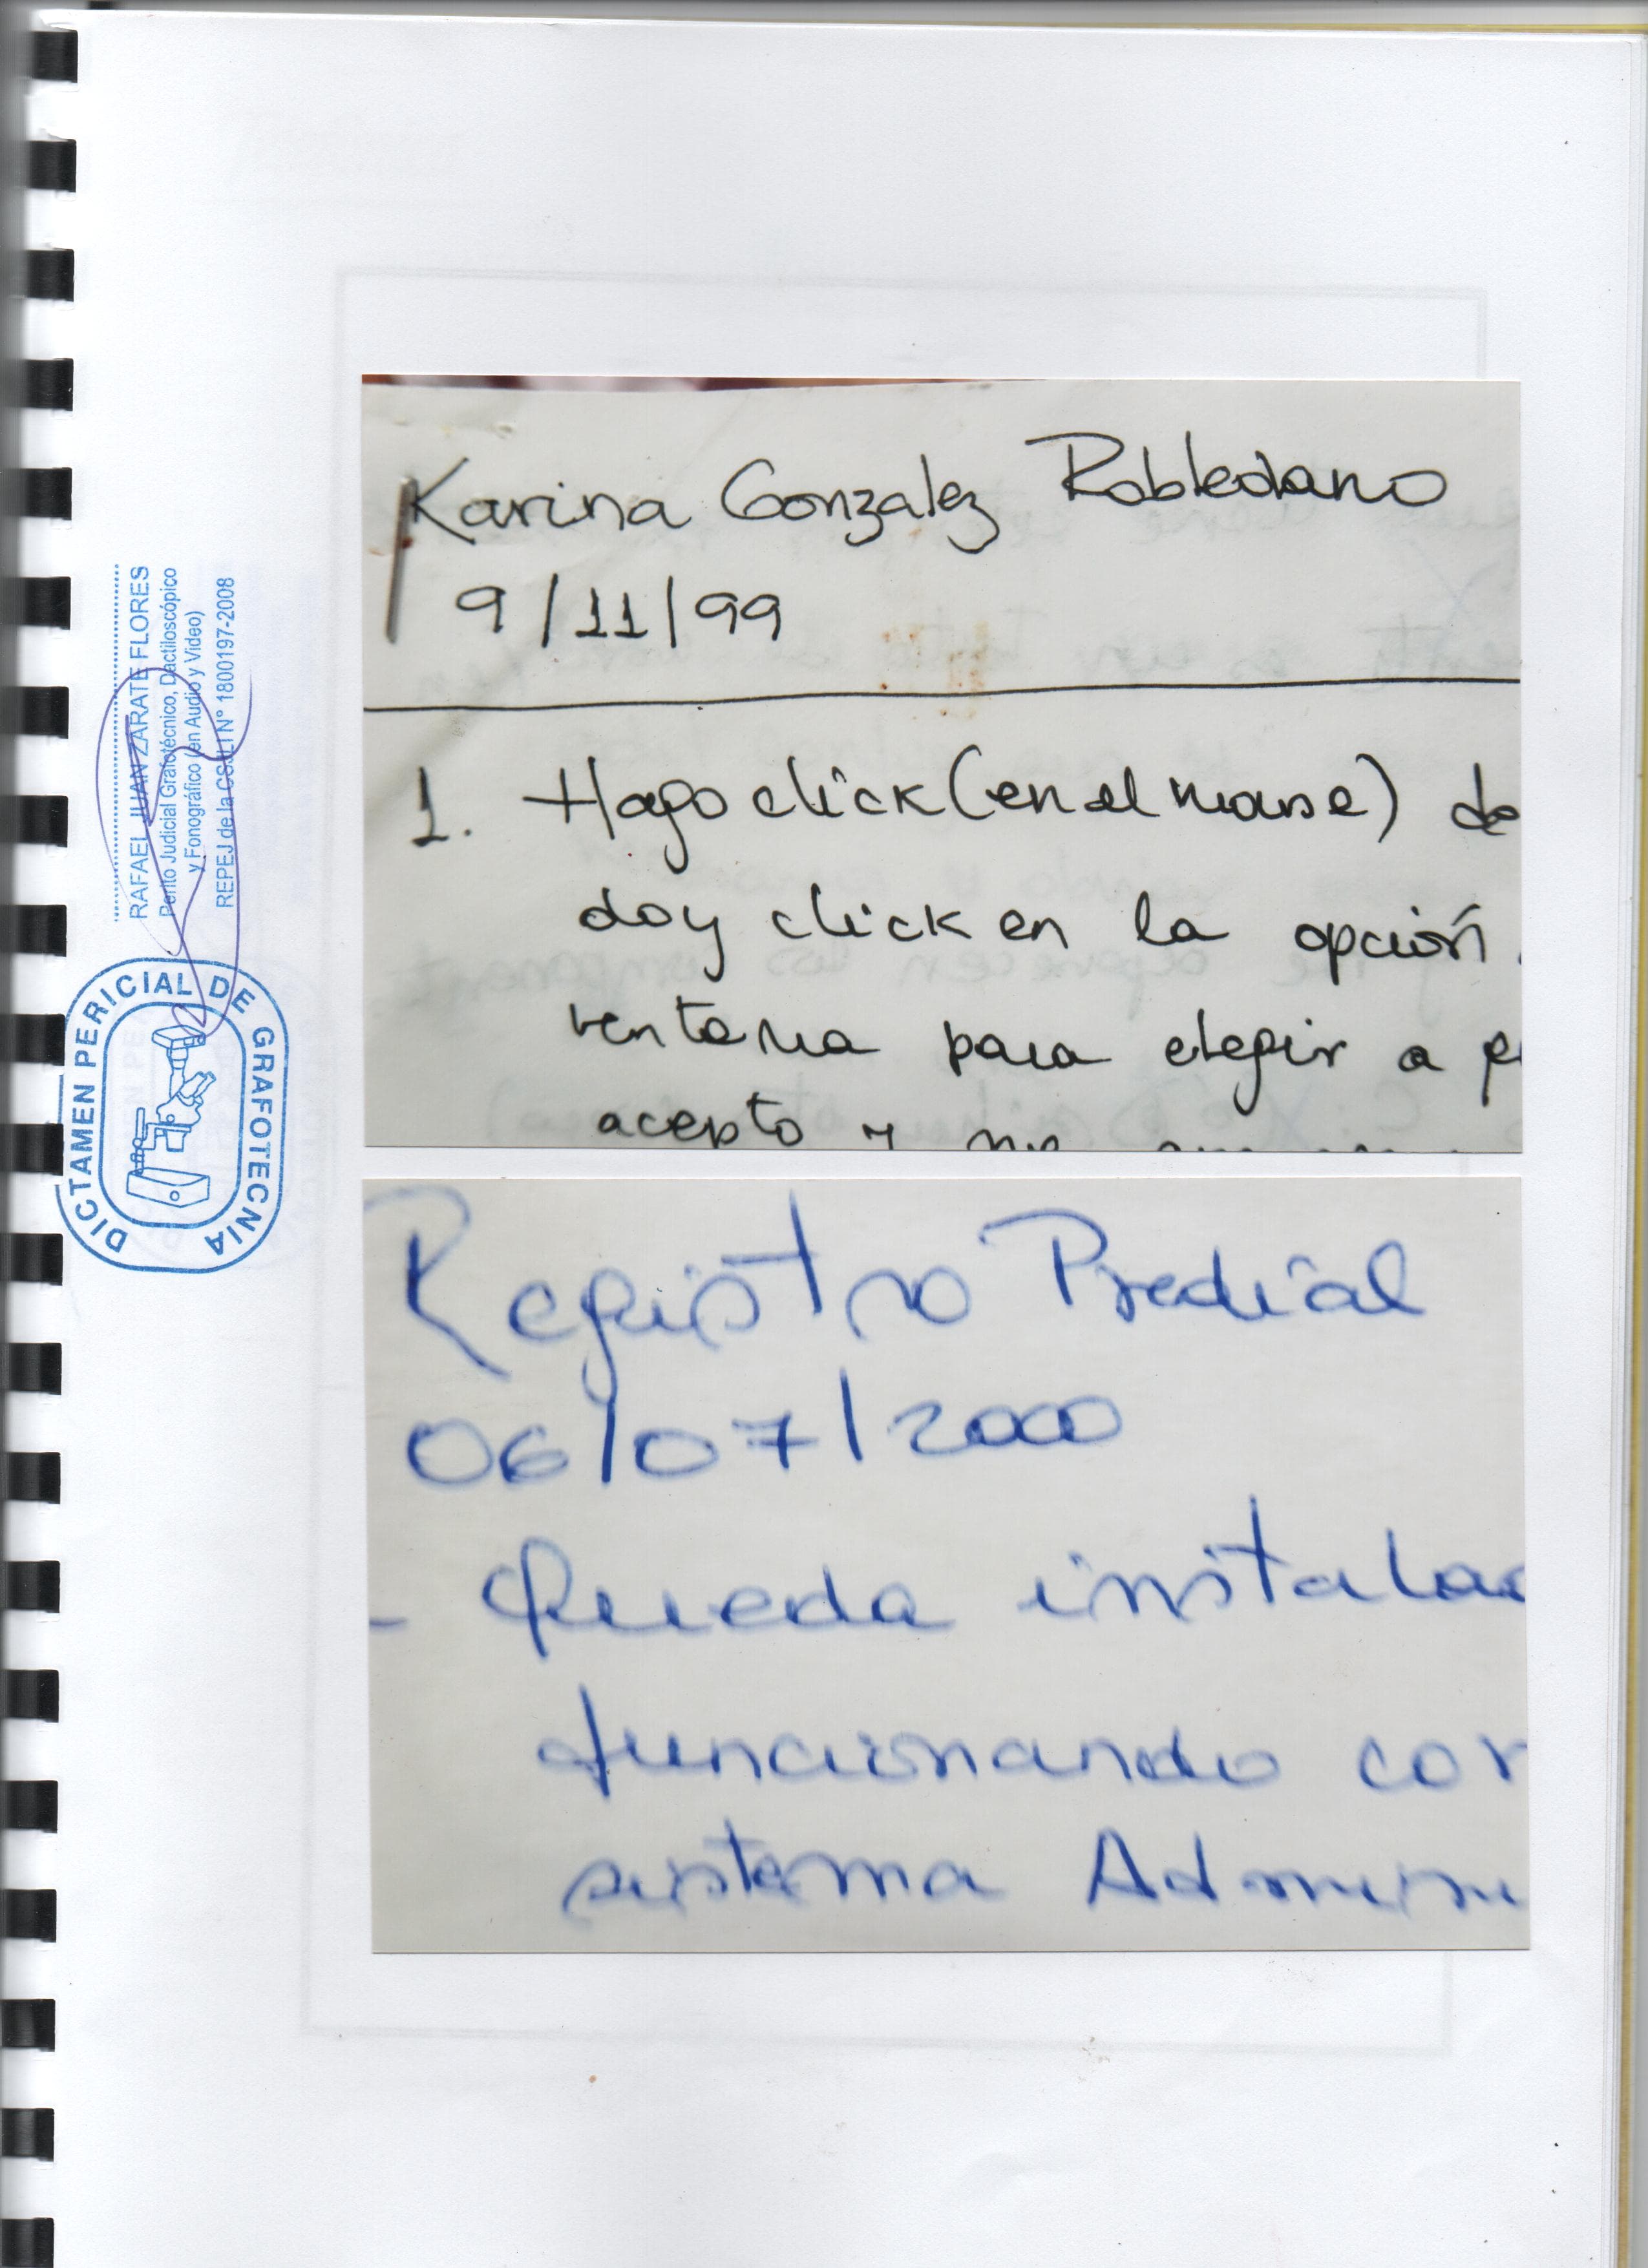 RAFAEL JUAN ZARATE FLORES
Perito Judicial Grafotécnico, Dactiloscópico
y Fonográfico (en Audio y Video)
REPEJ de la CSJLI N° 1800197-2008
DICTAMEN PERICIAL DE GRAFOTECNIA
Karina Gonzalez Robledano
9/11/99
1. Hago click (en el mouse) de
doy click en la opción
ventana para elegir a
acepto y
Registro Predial
06/07/2000
- Queda instalad
funcionando cor
sistema Adminis